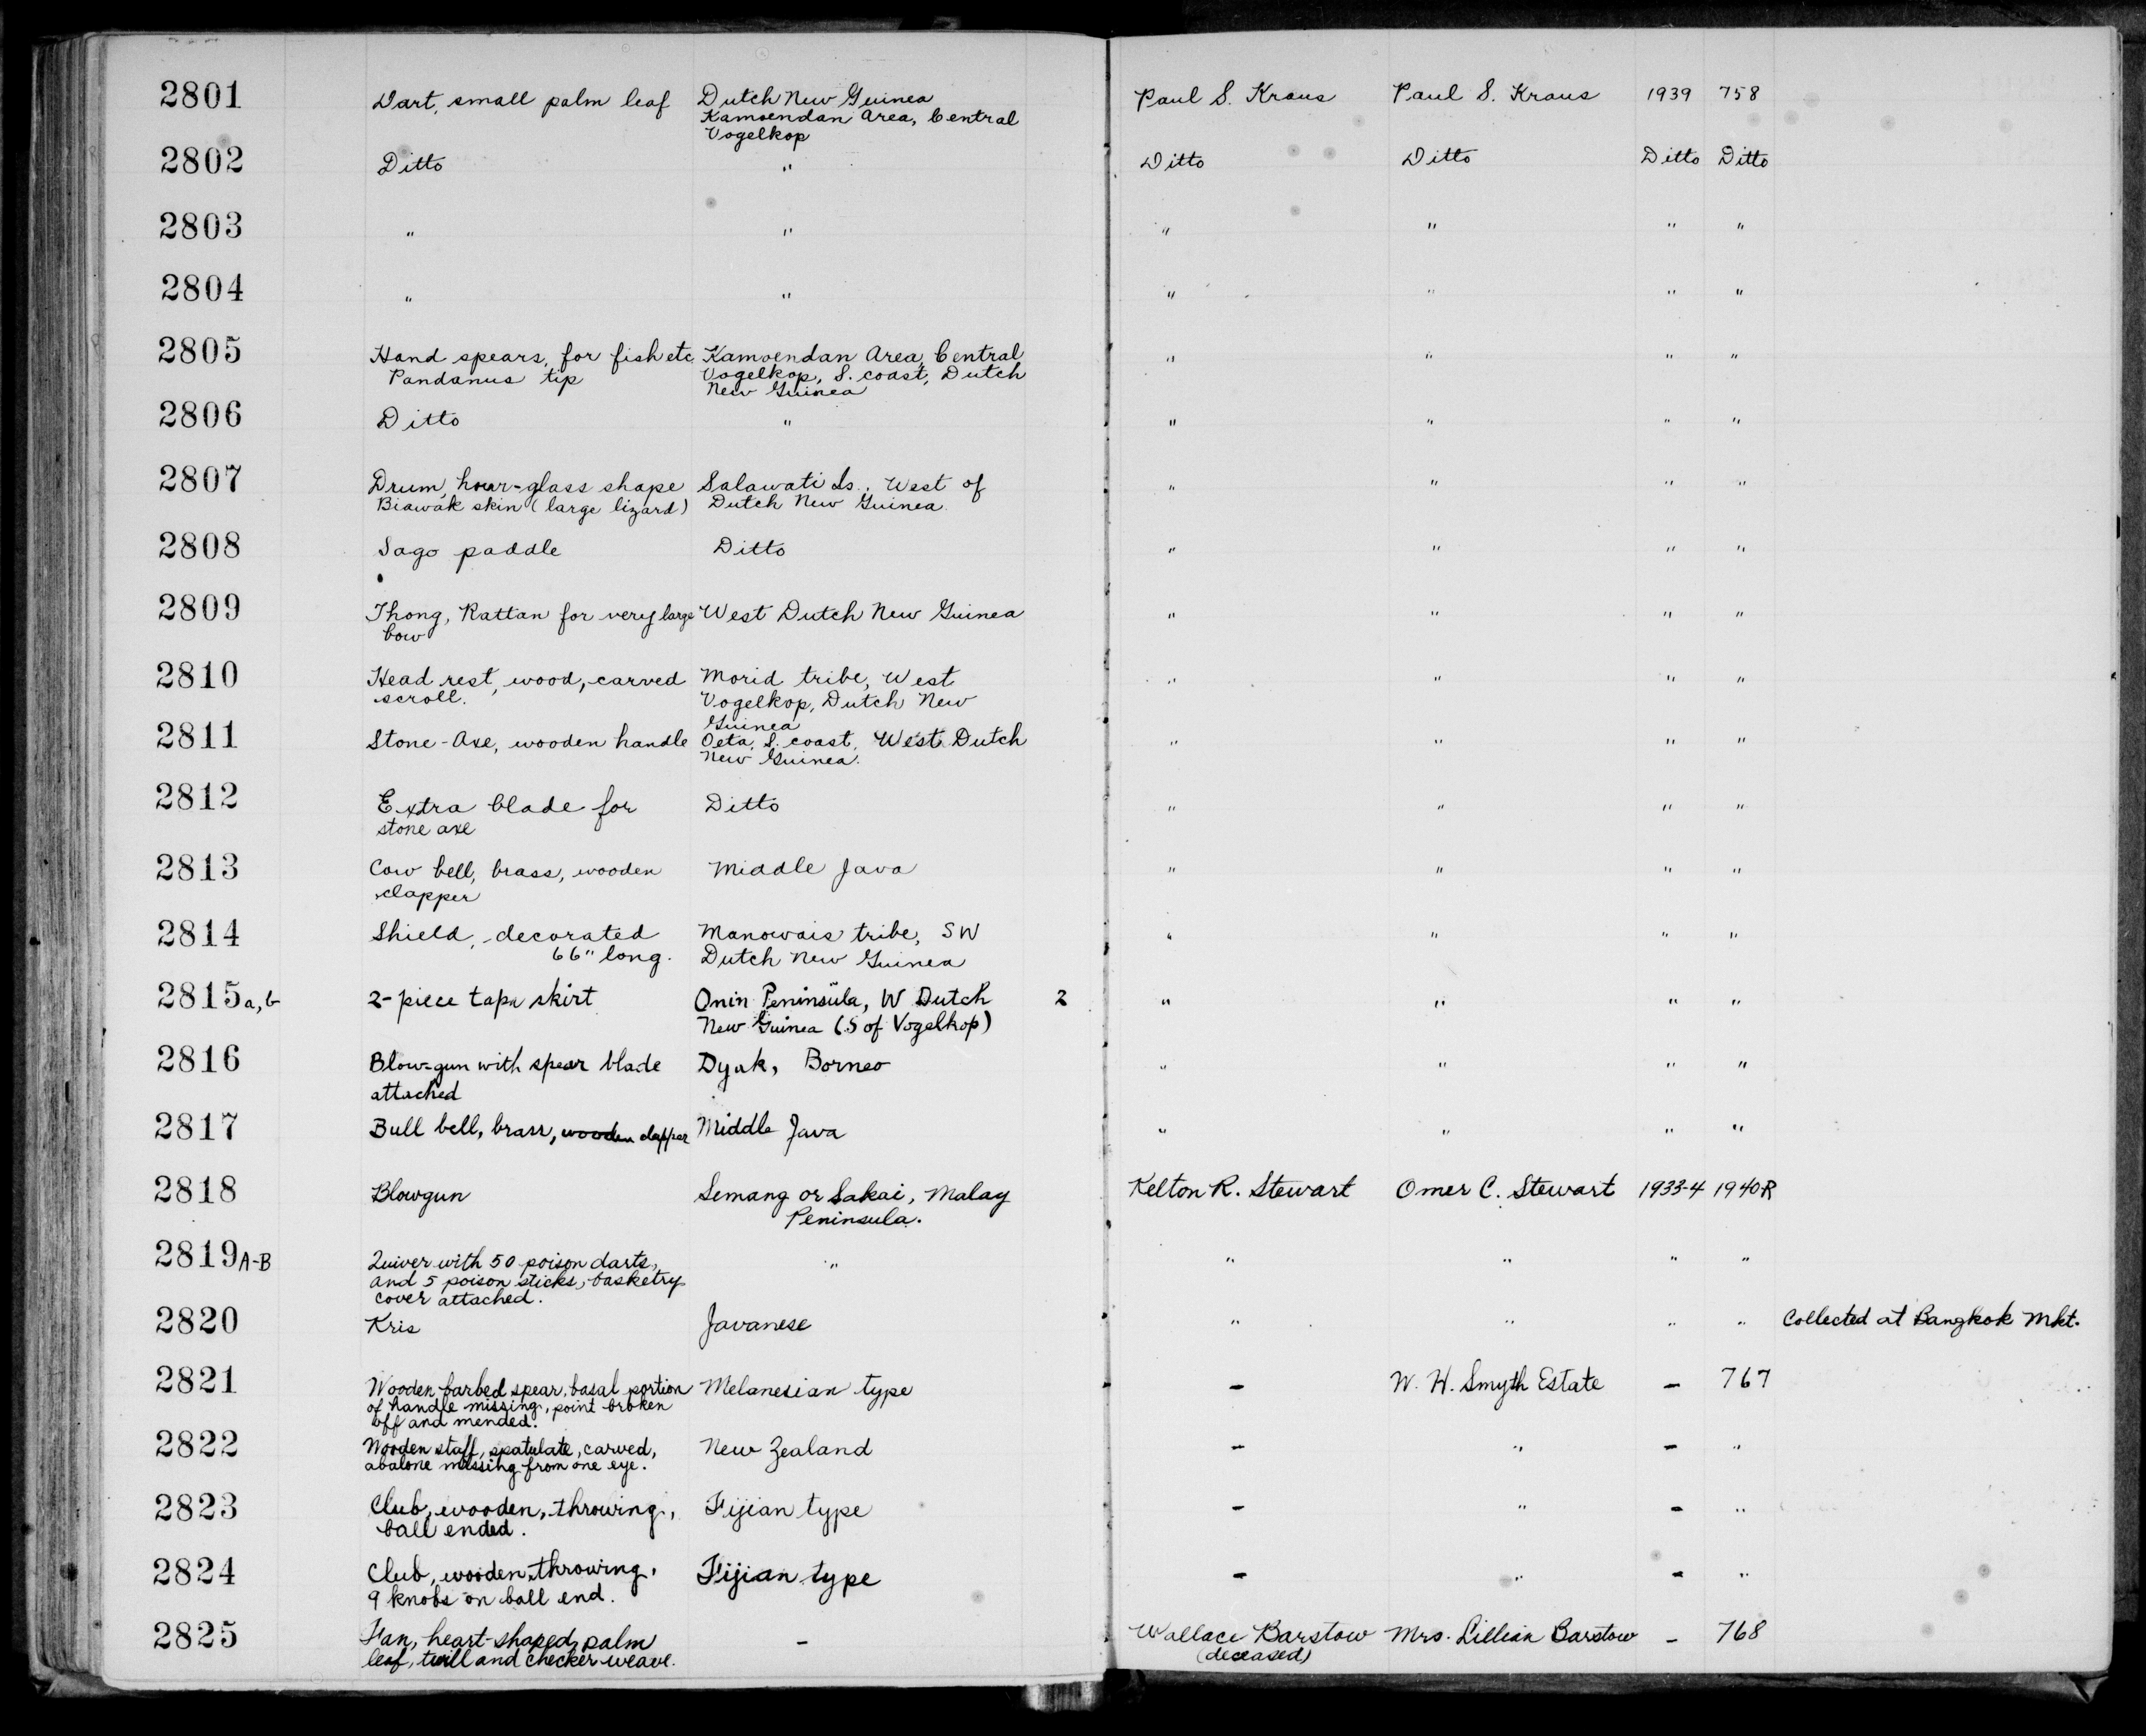 2801 Dart, small palm leaf Dutch New Guinea Paul S. Kraus Paul S. Kraus 1939 758
Kamoendan Area, Central
Vogelkop
2802 Ditto " Ditto Ditto Ditto Ditto
2803 " " " " " "
2804 " " " " " "
2805 Hand spears, for fish etc Kamoendan Area, Central " " " "
Pandanus tip Vogelkop, S. coast, Dutch
New Guinea
2806 Ditto " " " " "
2807 Drum, hour-glass shape Salawati Is., West of " " " "
Biawak skin (large lizard) Dutch New Guinea.
2808 Sago paddle Ditto " " " "
2809 Thong, Rattan for very large West Dutch New Guinea " " " "
bow
2810 Head rest, wood, carved Morid tribe, West " " " "
scroll. Vogelkop, Dutch New
Guinea
2811 Stone-Axe, wooden handle Oeta, S. coast, West Dutch " " " "
New Guinea.
2812 Extra blade for Ditto " " " "
stone axe
2813 Cow bell, brass, wooden Middle Java " " " "
clapper
2814 Shield, decorated Manowais tribe, SW " " " "
66" long. Dutch New Guinea
2815 a,b 2-piece tapa skirt Onin Peninsula, W Dutch 2 " " " "
New Guinea (S of Vogelkop)
2816 Blow-gun with spear blade Dyak, Borneo " " " "
attached
2817 Bull bell, brass, wooden clapper Middle Java " " " "
2818 Blowgun Semang or Sakai, Malay Kelton R. Stewart Omer C. Stewart 1933-4 1940R
Peninsula.
2819 A-B Quiver with 50 poison darts, " " " " "
and 5 poison sticks, basketry
cover attached.
2820 Kris Javanese " " " " Collected at Bangkok Mkt.
2821 Wooden barbed spear, basal portion Melanesian type – W. H. Smyth Estate – 767
of handle missing, point broken
off and mended.
2822 Wooden staff, spatulate, carved, New Zealand – " – "
abalone missing from one eye.
2823 Club, wooden, throwing, Fijian type – " – "
ball ended.
2824 Club, wooden, throwing, Fijian type – " – "
9 knobs on ball end.
2825 Fan, heart-shaped, palm – Wallace Barstow Mrs. Lillian Barstow – 768
leaf, twill and checker weave. (deceased)